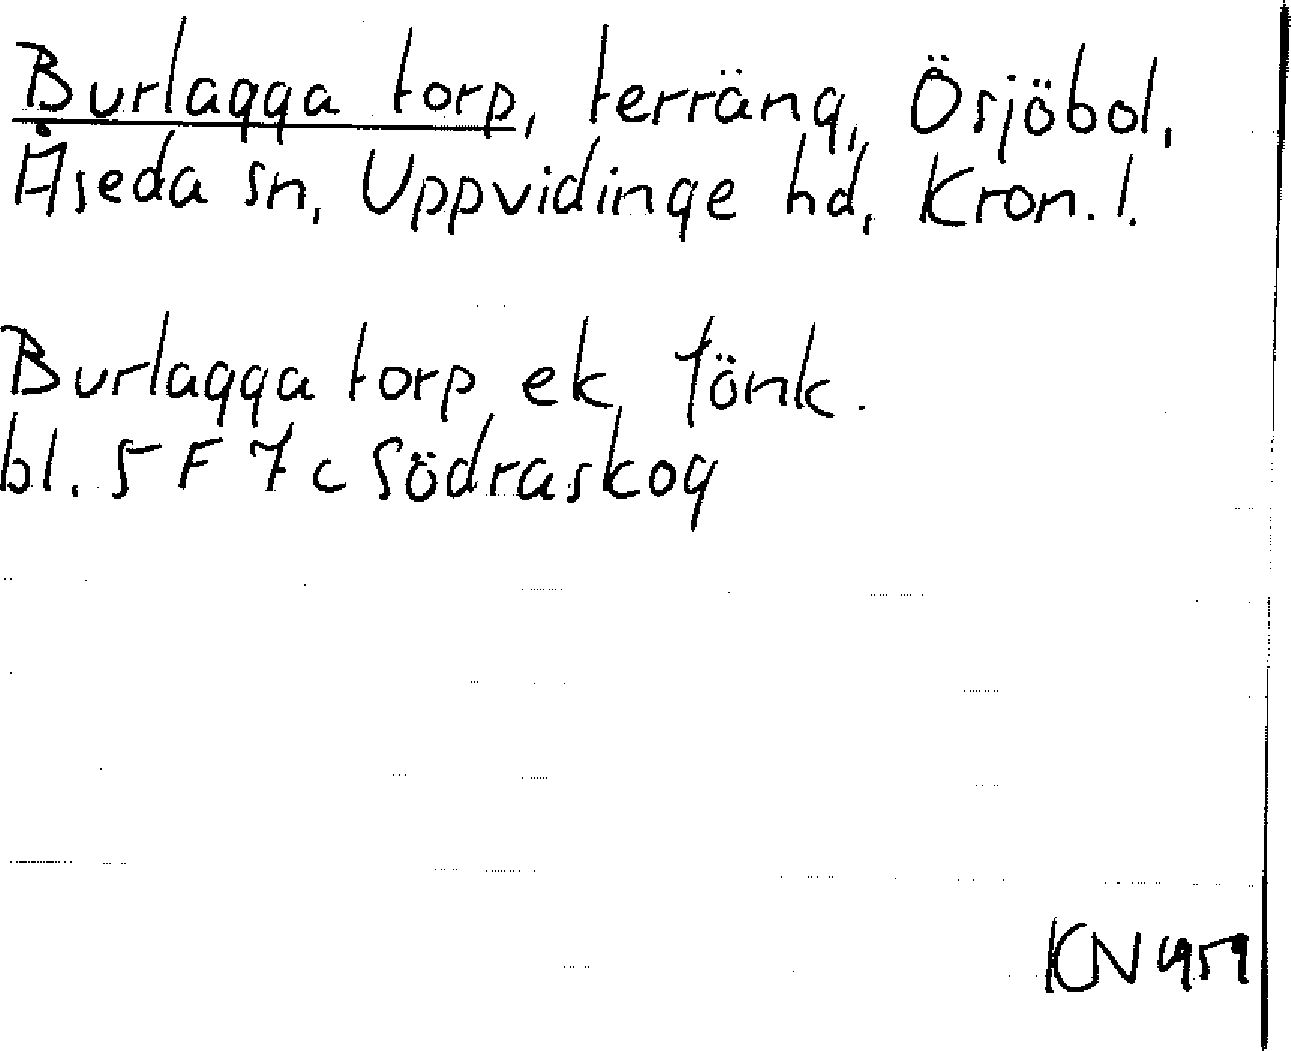 Burlagga torp, terräng, Ösjöbol,
Åseda sn, Uppvidinge hd, Kron. l.
Burlagga torp ek fönk.
bl. 5 F 7 c Södraskog